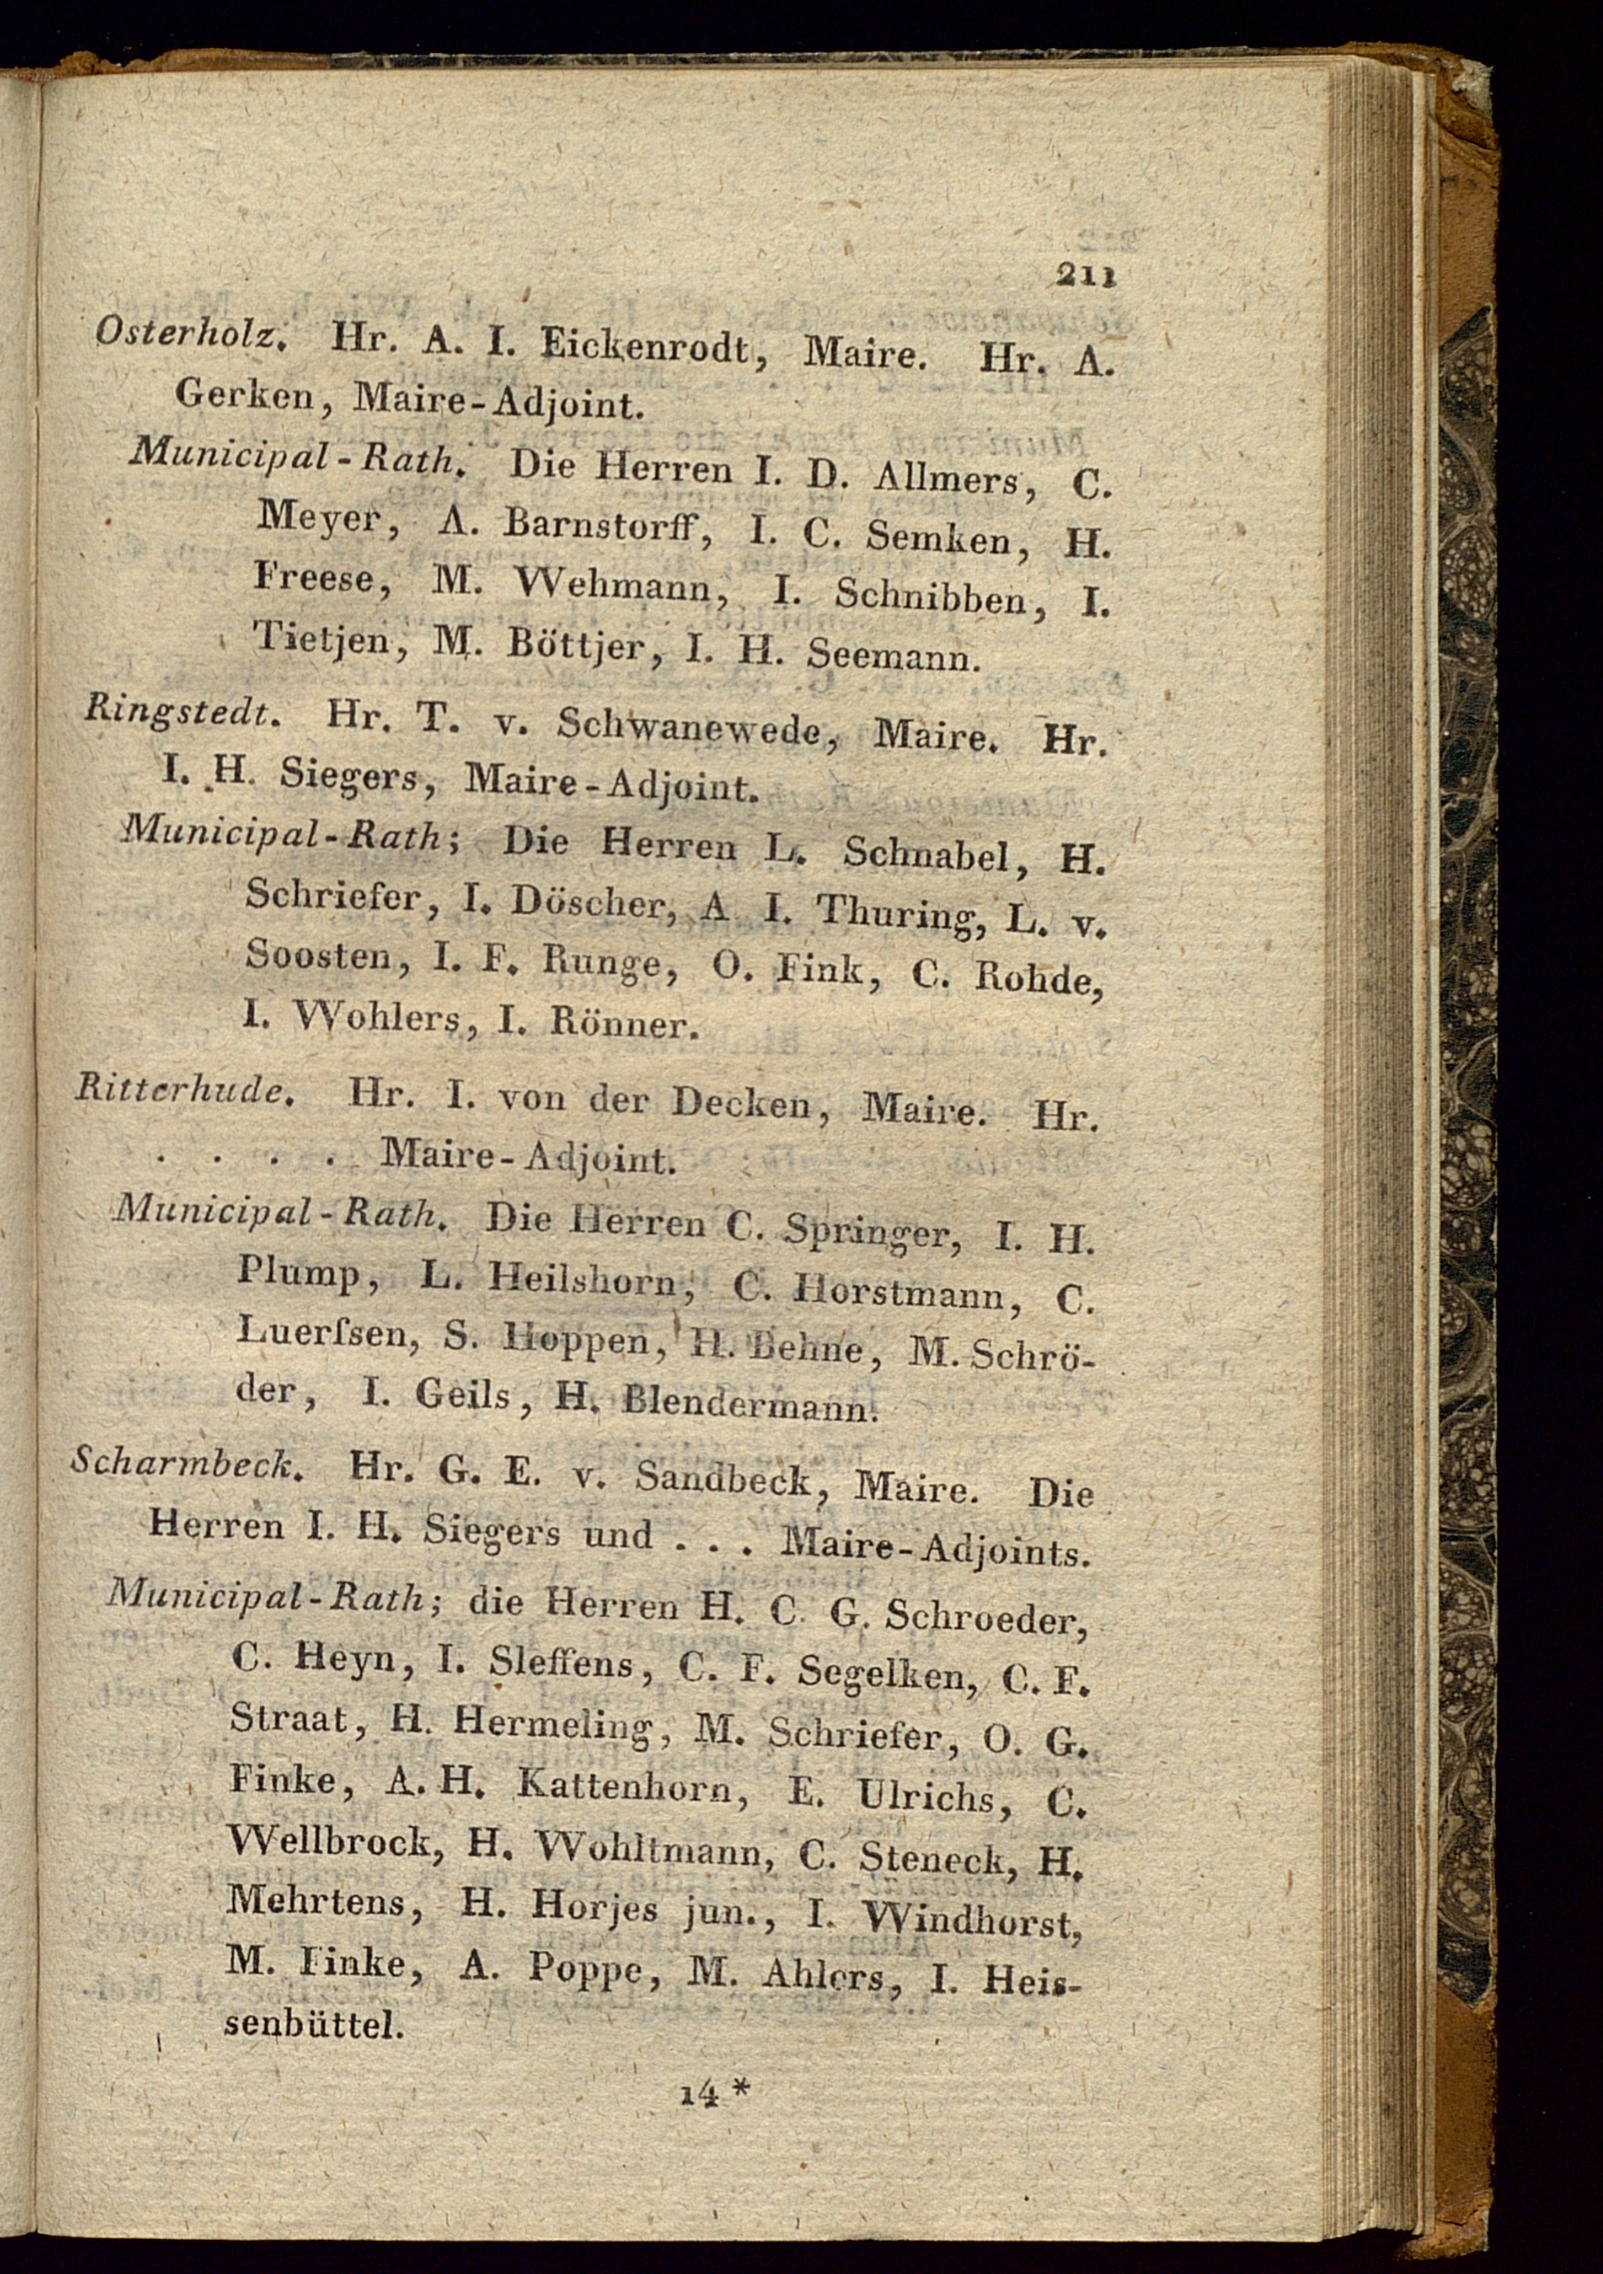 211
Osterholz. Hr. A. I. Eickenrodt, Maire. Hr. A.
Gerken, Maire-Adjoint.
Municipal-Rath. Die Herren I. D. Allmers, C.
Meyer, A. Barnstorff, I. C. Semken, H.
Freese, M. Wehmann, I. Schnibben, I.
Tietjen, M. Böttjer, I. H. Seemann.
Ringstedt. Hr. T. v. Schwanewede, Maire. Hr.
I. H. Siegers, Maire-Adjoint.
Municipal-Rath; Die Herren L. Schnabel, H.
Schriefer, I. Döscher, A I. Thuring, L. v.
Soosten, I. F. Runge, O. Fink, C. Rohde,
I. Wohlers, I. Rönner.
Ritterhude. Hr. I. von der Decken, Maire. Hr.
. . . . Maire-Adjoint.
Municipal-Rath. Die Herren C. Springer, I. H.
Plump, L. Heilshorn, C. Horstmann, C.
Luerſsen, S. Hoppen, H. Behne, M. Schrö-
der, I. Geils, H. Blendermann.
Scharmbeck. Hr. G. E. v. Sandbeck, Maire. Die
Herren I. H. Siegers und . . . Maire-Adjoints.
Municipal-Rath; die Herren H. C. G. Schroeder,
C. Heyn, I. Sleffens, C. F. Segelken, C. F.
Straat, H. Hermeling, M. Schriefer, O. G.
Finke, A. H. Kattenhorn, E. Ulrichs, C.
Wellbrock, H. Wohltmann, C. Steneck, H.
Mehrtens, H. Horjes jun., I. Windhorst,
M. Finke, A. Poppe, M. Ahlers, I. Heis-
senbüttel.
14 *